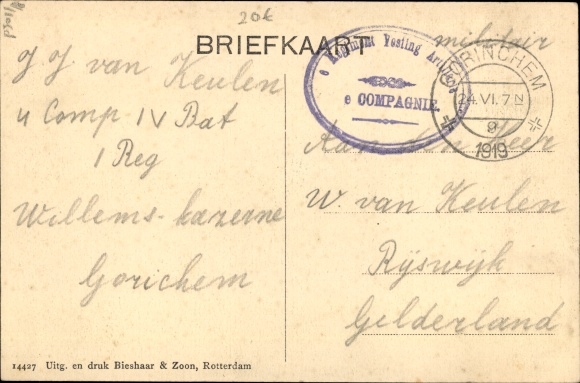 20€
BRIEFKAART
militair
e Regiment Vesting Artillerie
e COMPAGNIE.
GORINCHEM
24.VI.7N
9
1919
J J van Keulen
4 Comp IV Bat
1 Reg
Willems-kazerne
Gorichem
Aan den Heer
W. van Keulen
Rijswijk
Gelderland
14427 Uitg. en druk Bieshaar & Zoon, Rotterdam